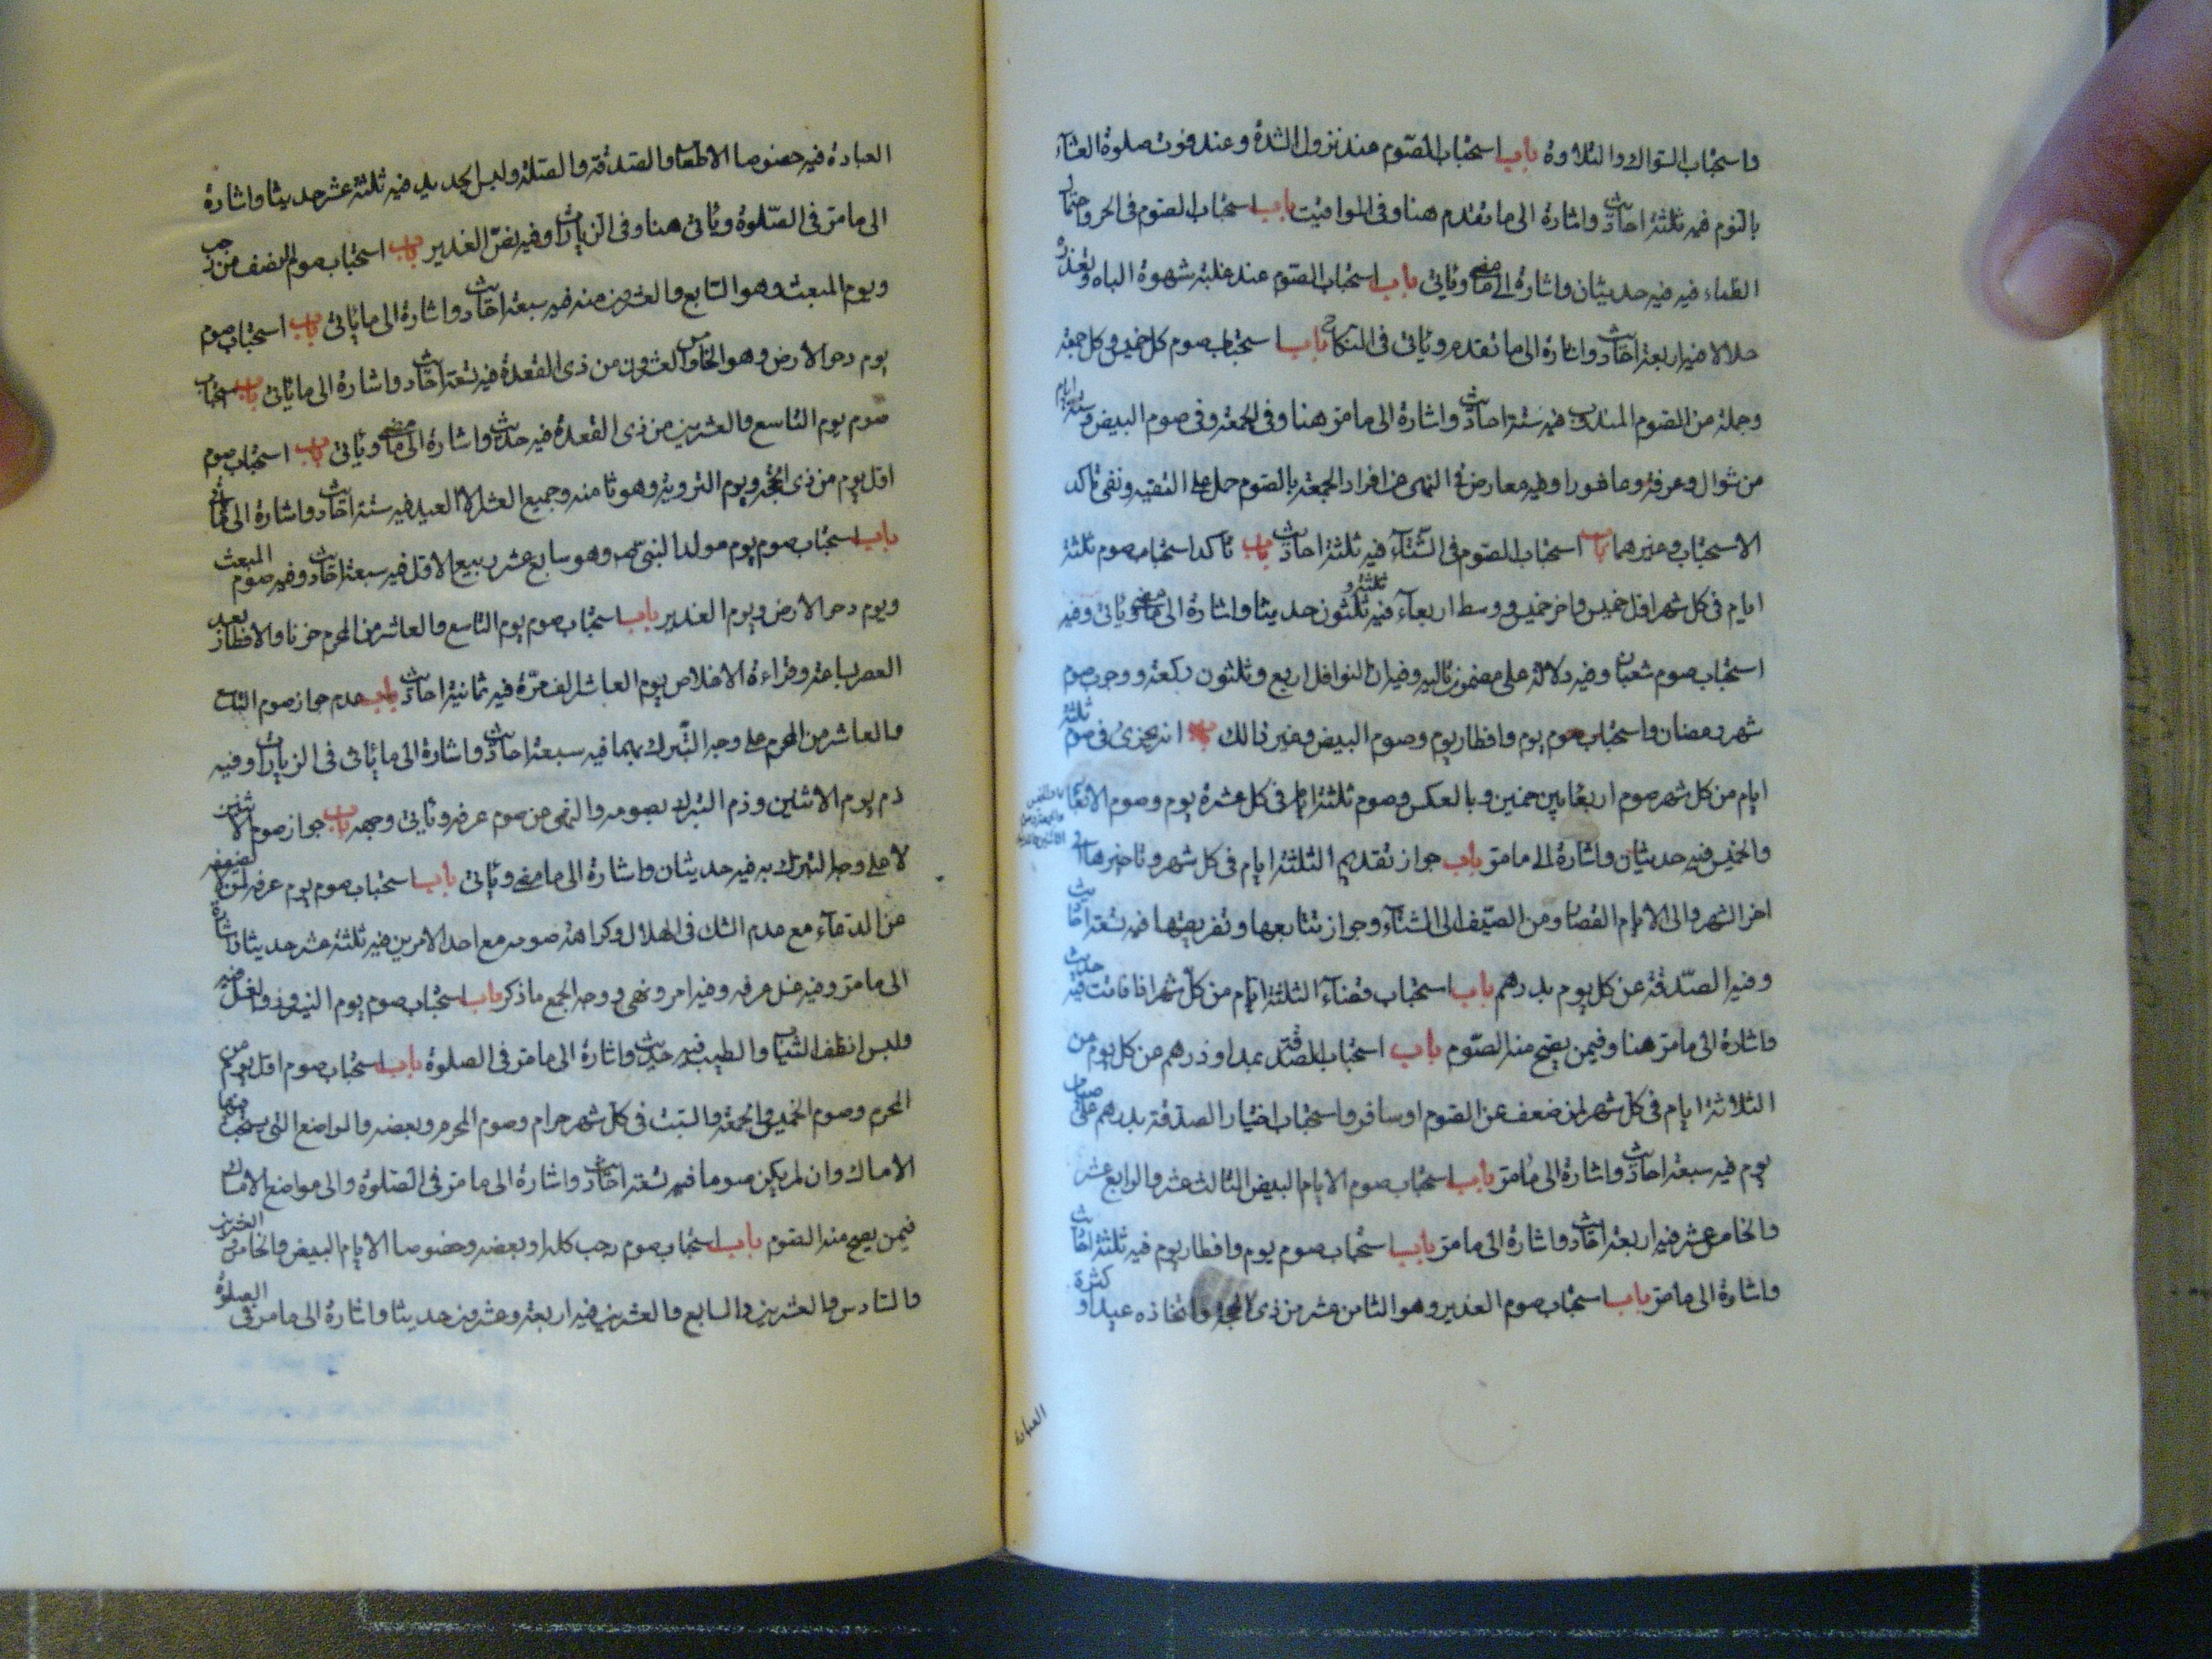 واستحباب السواك والتلاوة باب استحباب الصوم عند نزول الشدة وعند فوت صلوة العشاء
بالنوم فيه ثلثة احاديث واشارة الى ما تقدم هنا وفى المواقيت باب استحباب الصوم فى الحر واحتمال
الظماء فيه فيه حديثان واشارة الى ما مضى وياتى باب استحباب الصوم عند غلبة شهوة الباه وتعذره
حلالا فيه اربعة احاديث واشارة الى ما تقدم وياتى فى النكاح باب استحباب صوم كل خميس وكل جمعة
وجملة من الصوم المندوب فيه ستة احاديث واشارة الى ما مر هنا وفى الجمعة وفى صوم البيض وستة ايام
من شوال وعرفة وعاشورا وفيه معارض فى النهى عن افراد الجمعة بالصوم حمل على التقية ونفى تاكد
الاستحباب وغيرهما باب استحباب الصوم فى الشتآء فيه ثلثة احاديث باب تاكد استحباب صوم ثلثة
ايام فى كل شهر اول خميس واخر خميس ووسط اربعآء فيه ثلثة وثلثون حديثا واشارة الى ما مضى وياتى وفيه
استحباب صوم شعبان وفيه دلالة على مضمون تاليه وفيه ان النوافل اربع وثلثون ركعة ووجوب صوم
شهر رمضان واستحباب صوم يوم وافطار يوم وصوم البيض وغير ذالك باب انه يجزى فى صوم ثلثة
ايام من كل شهر صوم اربعا بين خميسين وبالعكس وصوم ثلثة ايام فى كل عشرة يوم وصوم الاربعا
والخميس فيه حديثان واشارة الى ما مر باب جواز تقديم الثلثة ايام فى كل شهر وتاخيرها الى
اخر الشهر والى الايام القصار ومن الصيف الى الشتآء وجواز تتابعها وتفريقها فيه تسعة احاديث
وفيه الصدقة عن كل يوم بدرهم باب استحباب قضآء الثلثة ايام من كل شهر اذا فاتت فيه حديث
واشارة الى ما مر هنا وفيمن يصح منه الصوم باب استحباب الصدقة بمد او درهم عن كل يوم من
الثلاثة ايام فى كل شهر لمن ضعف عن الصوم او سافر واستحباب اختيار الصدقة بدرهم على صيام
يوم فيه سبعة احاديث واشارة الى ما مر باب استحباب صوم الايام البيض الثالث عشر والرابع عشر
والخامس عشر فيه اربعة احاديث واشارة الى ما مر باب استحباب صوم يوم وافطار يوم فيه ثلثة احاديث
واشارة الى ما مر باب استحباب صوم الغدير وهو الثامن عشر من ذى الحجة واتخاذه عيدا وكثرة
العبادة
العبادة فيه خصوصا الاطعام والصدقة والصلة ولبس الجديد فيه ثلثة عشر حديثا واشارة
الى ما مر فى الصلوة وياتى هنا وفى الزيارات وفيه نص الغدير باب استحباب صوم النصف من رجب
ويوم المبعث وهو السابع والعشرون منه فيه سبعة احاديث واشارة الى ما ياتى باب استحباب صوم
يوم دحو الارض وهو الخامس والعشرون من ذى القعدة فيه تسعة احاديث واشارة الى ما ياتى باب استحباب
صوم يوم التاسع والعشرين من ذى القعدة فيه حديث واشارة الى ما مضى وياتى باب استحباب صوم
اول يوم من ذى الحجة ويوم التروية وهو ثامنه وجميع العشر الا العيد فيه ستة احاديث واشارة الى ما ياتى
باب استحباب صوم يوم مولد النبى ص وهو سابع عشر ربيع الاول فيه سبعة احاديث وفيه صوم المبعث
ويوم دحو الارض ويوم الغدير باب استحباب صوم يوم التاسع والعاشر من المحرم حزنا والافطار بعد
العصر بساعة وقراءة الاخلاص يوم العاشر الف مرة فيه ثمانية احاديث باب عدم جواز صوم التاسع
والعاشر من المحرم على وجه التبرك بهما فيه سبعة احاديث واشارة الى ما ياتى فى الزيارات وفيه
ذم يوم الاثنين وذم التبرك بصومه والنهى عن صوم عرفة وياتى وجهه باب جواز صوم الاثنين
لا على وجه التبرك به فيه حديثان واشارة الى ما مضى وياتى باب استحباب صوم يوم عرفة لمن لا يضعفه
عن الدعآء مع عدم الشك فى الهلال وكراهة صومه مع احد الامرين فيه ثلثة عشر حديثا واشارة
الى ما مر وفيه غسل عرفة وفيه امر ونهى ووجه الجمع ما ذكر باب استحباب صوم يوم النيروز والغسل فيه
ولبس انظف الثياب والطيب فيه حديث واشارة الى ما مر فى الصلوة باب استحباب صوم اول يوم من
المحرم وصوم الخميس والجمعة والسبت فى كل شهر حرام وصوم المحرم وبعضه والمواضع التى يستحب فيها
الامساك وان لم يكن صوما فيه تسعة احاديث واشارة الى ما مر فى الصلوة والى مواضع الامساك
فيمن يصح منه الصوم باب استحباب صوم رجب كله او بعضه وخصوصا الايام البيض والخامس والعشرين
والسادس والعشرين والسابع والعشرين فيه اربعة وعشرون حديثا واشارة الى ما مر فى الصلوة